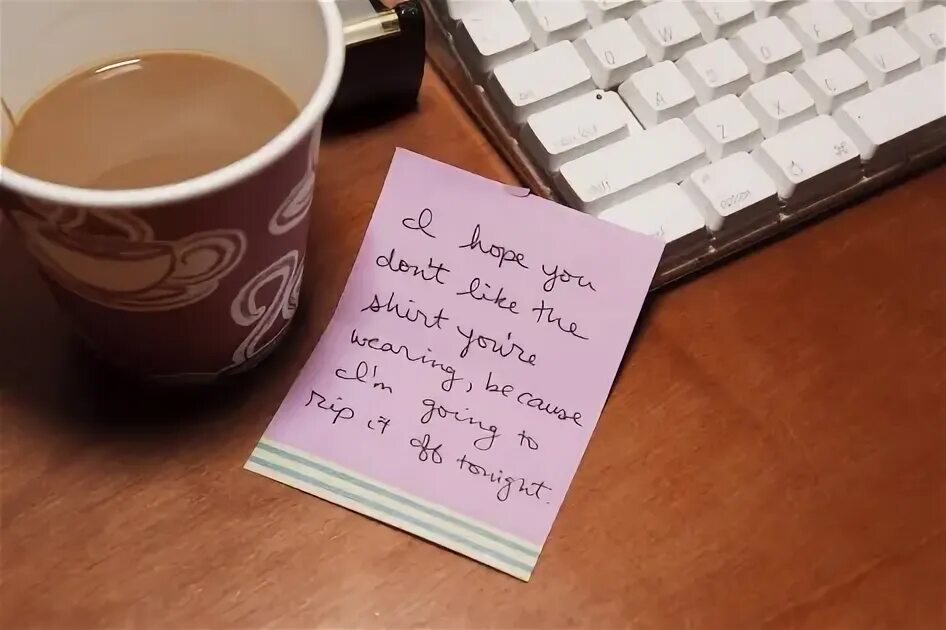 I hope you
don't like the
shirt you're
wearing, because
I'm going to
rip it off tonight.
Q
W
A
S
D
F
Z
X
C
V
option
⌘